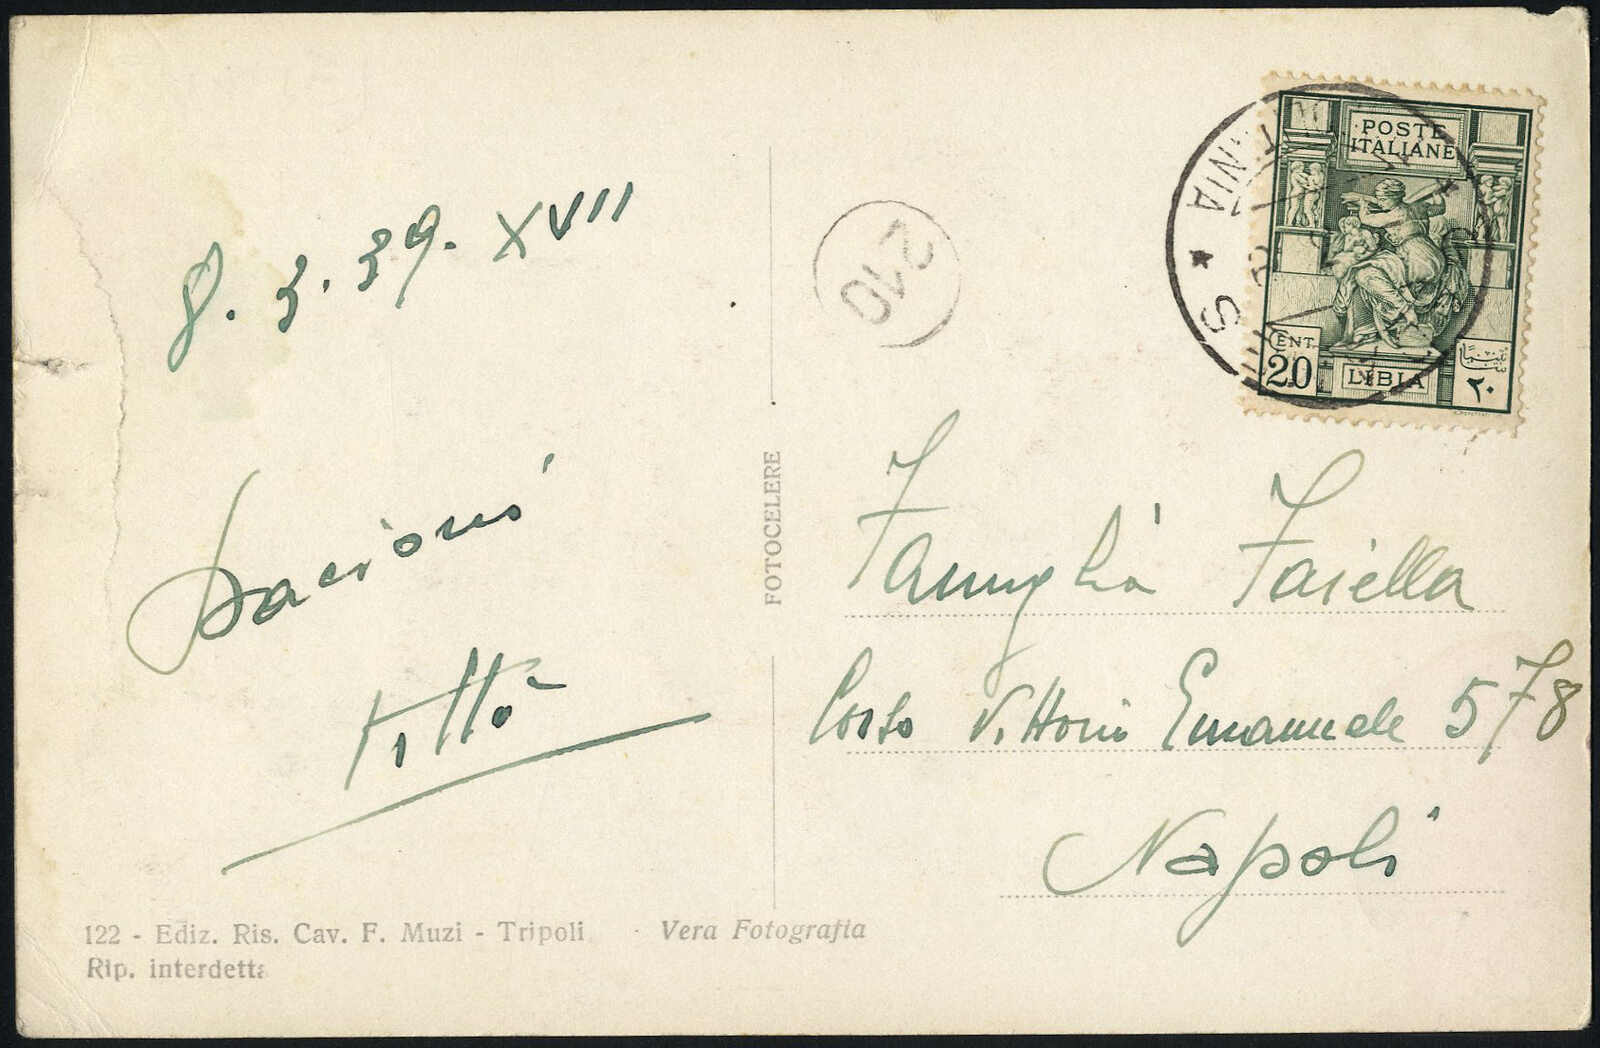 8.3.39. XVII
Bacioni
Titto
122 - Ediz. Ris. Cav. F. Muzi - Tripoli
Rip. interdetta
Vera Fotografia
FOTOCELERE
210
POSTE
ITALIANE
CENT.
20
LIBIA
٢٠
Famiglia Faiella
Corso Vittorio Emanuele 578
Napoli